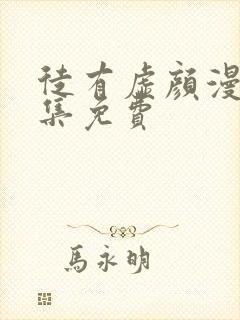 徒有虛顏漫
集免費
馬永明